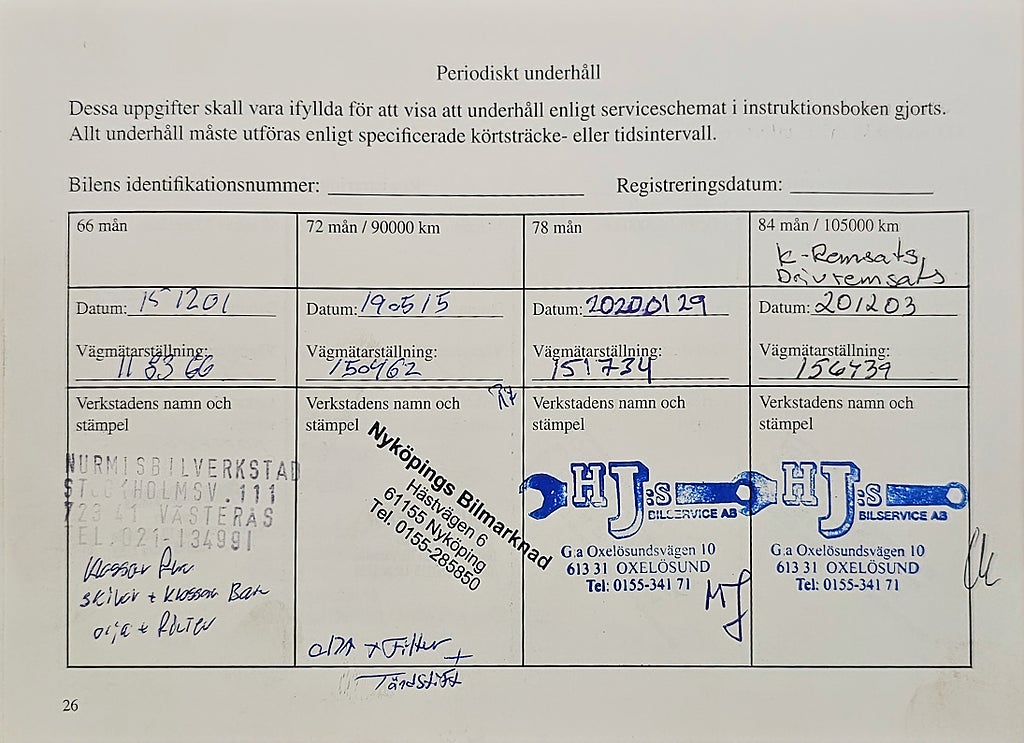 Periodiskt underhåll
Dessa uppgifter skall vara ifyllda för att visa att underhåll enligt serviceschemat i instruktionsboken gjorts.
Allt underhåll måste utföras enligt specificerade körtsträcke- eller tidsintervall.
Bilens identifikationsnummer:
Registreringsdatum:
66 mån
Datum: 151201
Vägmätarställning:
118366
Verkstadens namn och
stämpel
NURMISBILVERKSTAD
STOCKHOLMSV.111
723 41 VÄSTERÅS
TEL.021-134991
klossar
skivor + klossar Bak
olja + Filter
72 mån / 90000 km
Datum: 190515
Vägmätarställning:
150462
Verkstadens namn och
stämpel
Nyköpings Bilmarknad
Hästvägen 6
61155 Nyköping
Tel. 0155-285850
olja + Filter +
Tändstift
78 mån
Datum: 20200129
Vägmätarställning:
151734
Verkstadens namn och
stämpel
HJ:s
BILSERVICE AB
G:a Oxelösundsvägen 10
613 31 OXELÖSUND
Tel: 0155-341 71
84 mån / 105000 km
k-Remsats,
Drivremsats
Datum: 201203
Vägmätarställning:
156439
Verkstadens namn och
stämpel
HJ:s
BILSERVICE AB
G:a Oxelösundsvägen 10
613 31 OXELÖSUND
Tel: 0155-341 71
26